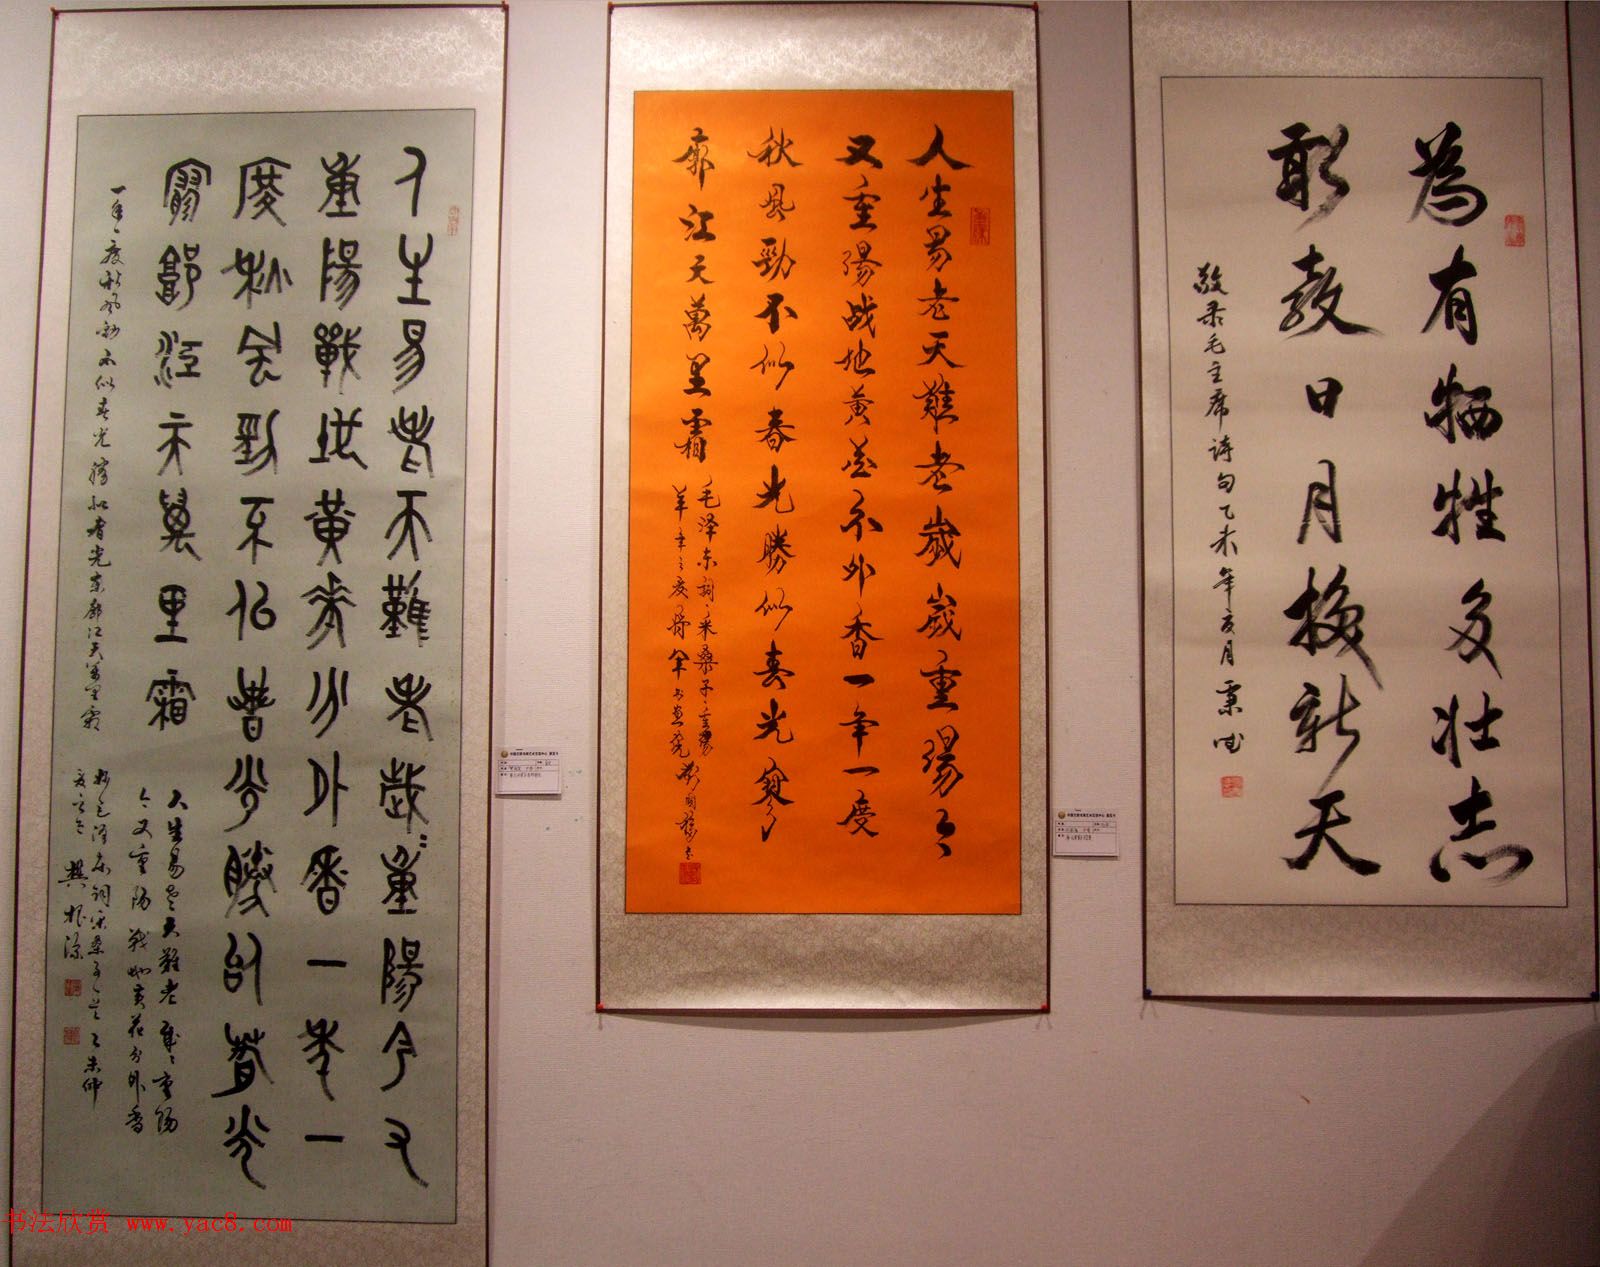 為有牺牲多壮志
敢教日月換新天
敬录毛主席诗句乙未年亥月秉
人生易老天難老歲歲重陽今
又重陽战地黄花分外香一年一度
秋風勁不似春光勝似春光寥
廓江天萬里霜
毛泽东词采桑子重陽
羊年之夏
人生易老天難老歲々重陽今又
重陽戰地黃花分外香一年一
度秋風勁不似春光勝似春光
寥廓江天萬里霜
人生易老天難老歲々重陽
今又重陽战地黄花分外香
一年一度秋風劲不似春光勝似春光寥廓江天万里霜
毛泽东词采桑子 乙未仲
书法欣赏 www.yac8.com